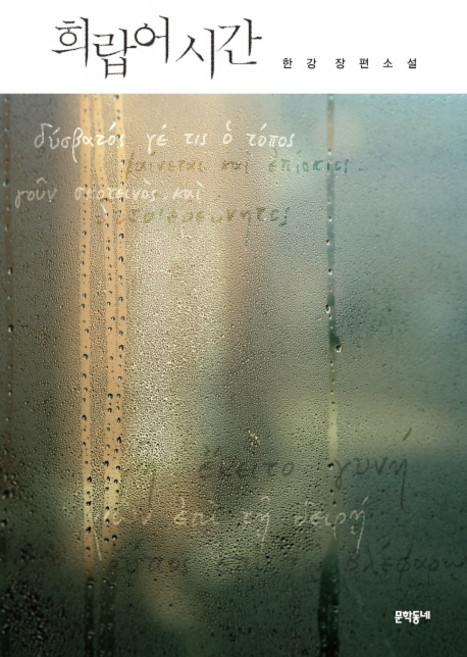 희랍어 시간
한강 장편소설
δύσβατός γέ τις ὁ τόπος
φαίνεται καὶ ἐπίσκιος
γοῦν σκοτεινὸς καὶ
ἔκειτο γυνή
ἐπὶ τῇ δειρῇ
文학동네